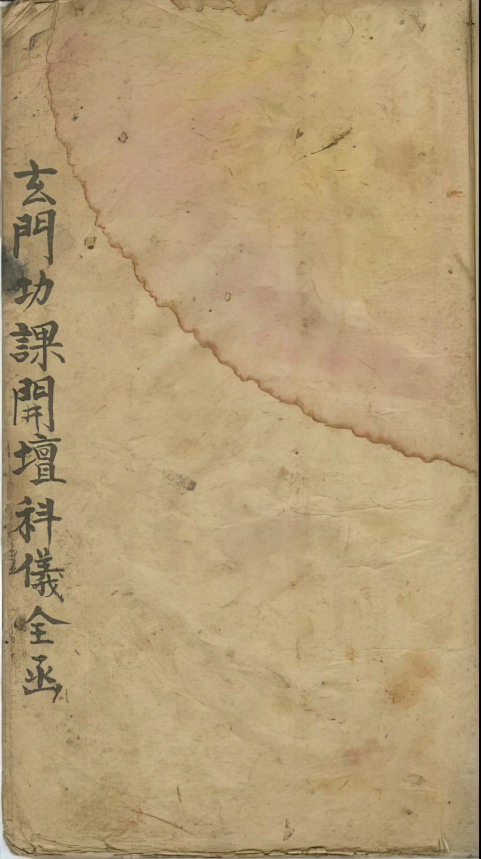 玄門功課開壇科儀全函